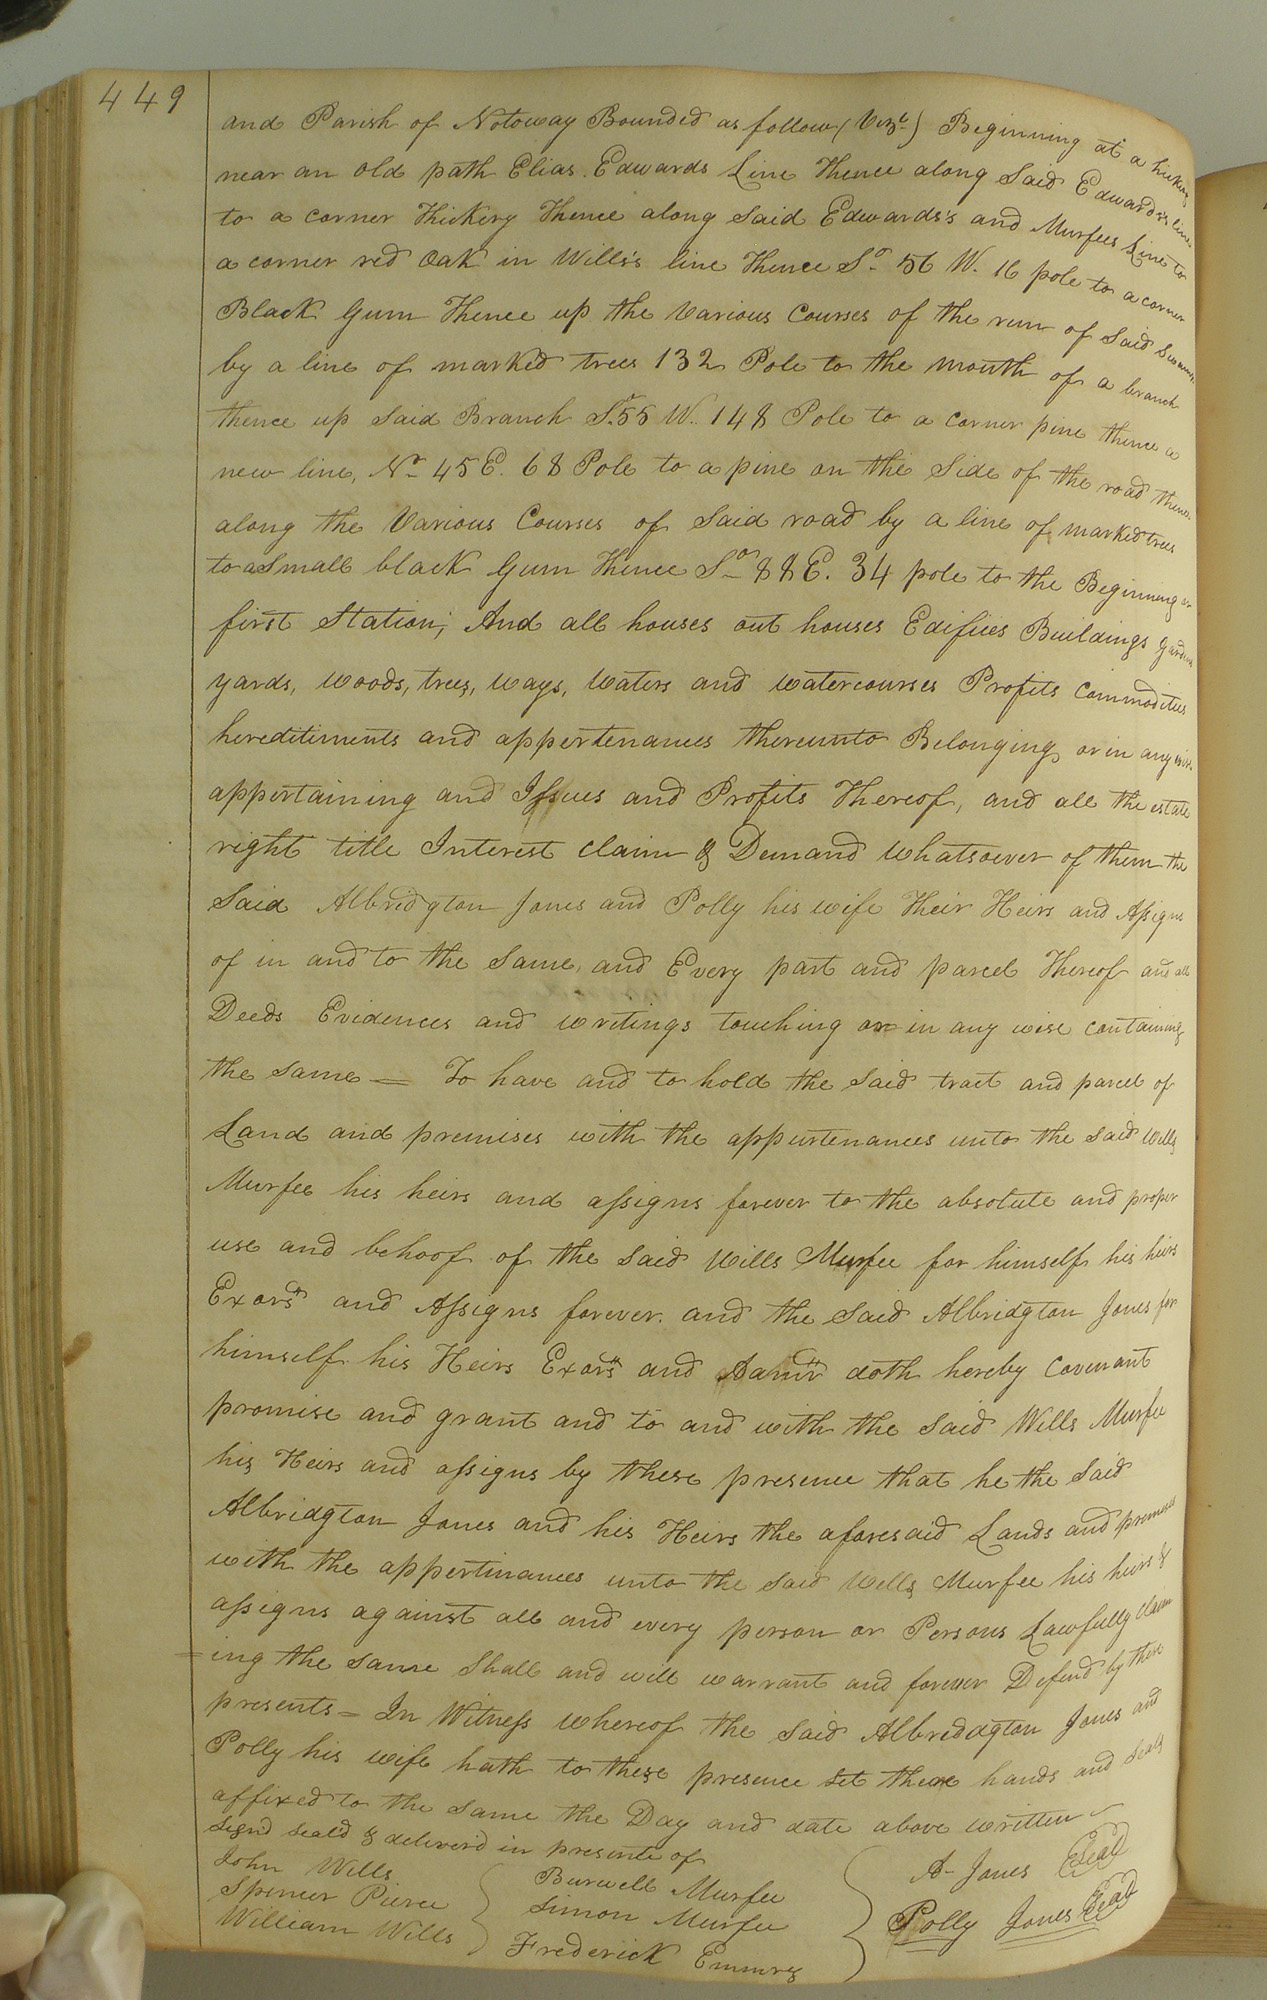 449
and Parish of Notoway Bounded as follow (Vizt.) Beginning at a hickory
near an old path Elias Edwards Line Thence along Said Edwards's line
to a corner Hickery Thence along Said Edwards's and Murfees Line to
a corner red Oak in Wills's line Thence So. 56 W. 16 pole to a corner
Black Gum Thence up the Various Courses of the run of Said Swamp
by a line of marked trees 132 Pole to the mouth of a branch
thence up Said Branch S. 55 W. 148 Pole to a corner pine thence a
new line, No. 45 E. 68 Pole to a pine on the Side of the road thence
along the Various Courses of Said road by a line of marked trees
to a Small black Gum Thence So. 88 E. 34 pole to the Beginning or
first Station; And all houses out houses Edifices Buildings gardens
yards, woods, trees, ways, waters and watercourses Profits Commodities
hereditiments and appertenances thereunto Belonging or in any wise
appertaining and Issues and Profits Thereof, and all the estate
right title Interest claim & Demand whatsoever of them the
Said Albridgton Jones and Polly his wife Their Heirs and Assigns
of in and to the Same, and Every part and parcel Thereof and all
Deeds Evidences and writings touching or in any wise containing
the same = To have and to hold the Said tract and parcel of
Land and premises with the appurtenances unto the Said Wills
Murfee his heirs and assigns forever to the absolute and proper
use and behoof of the Said Wills Murfee for himself his heirs
Exors and Assigns forever. and the Said Albridgton Jones for
himself his Heirs Exors and Admr doth hereby Covenant
promise and grant and to and with the Said Wills Murfee
his Heirs and assigns by these presence that he the Said
Albridgton Jones and his Heirs the aforesaid Lands and premises
with the appertinances unto the Said Wills Murfee his heirs &
assigns against all and every person or Persons Lawfully claim
=ing the same Shall and will warrant and forever Defend by these
presents = In Witness whereof the Said Albredgton Jones and
Polly his wife hath to these presence set there hands and Seals
affixed to the Same the Day and date above written
Signd Seal'd & deliverd in presente of
John Wills
Spencer Pierce
William Wills
Burwell Murfee
Simon Murfee
Frederick Emmry
A Jones Seal
Polly Jones Seal